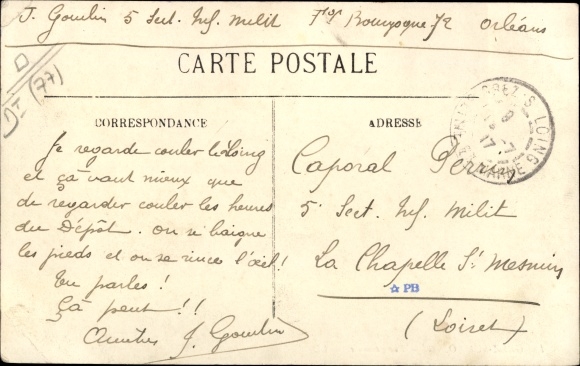 J. Goudin 5 Sect. Inf. Milit Fg Bourgogne 72 Orléans
(77)
CARTE POSTALE
CORRESPONDANCE
ADRESSE
GREZ-S-LOING
17-7
Je regarde couler le Loing
et ça vaut mieux que
de regarder couler les heures
du Dépôt. On se baigne
les pieds et on se rince l'œil!
Tu parles!
Ça peut!!
Amitiés J. Goudin
Caporal
5e Sect. Inf. Milit
La Chapelle St Mesmin
☆ PB
(Loiret)